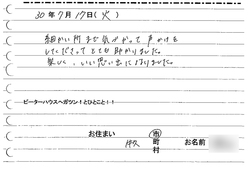 30年7月17日(火)
細かい所まで気がかって声かけを
してくださってとても助かりました。
楽しく、いい思い出になりました。
ピーターハウスへガツン!とひとこと!!
お住まい
市
町
村
お名前